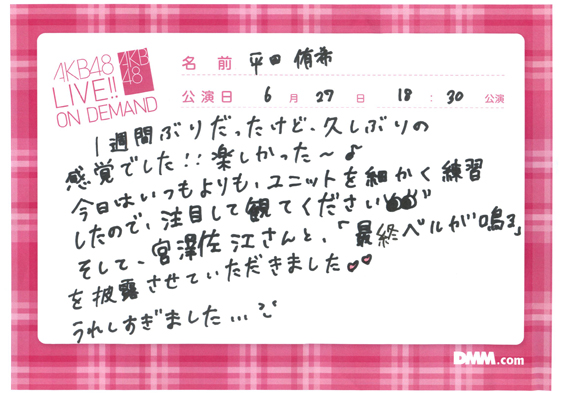 AKB48
LIVE!!
ON DEMAND
AKB
48
名前 平田 侑希
公演日 6月27日 18:30 公演
1週間ぶりだったけど、久しぶりの
感覚でした!!楽しかった〜♪
今日はいつもよりも、ユニットを細かく練習
したので、注目して観てください
そして、宮澤佐江さんと、「最終ベルが鳴る」
を披露させていただきました
うれしすぎました...
DMM.com